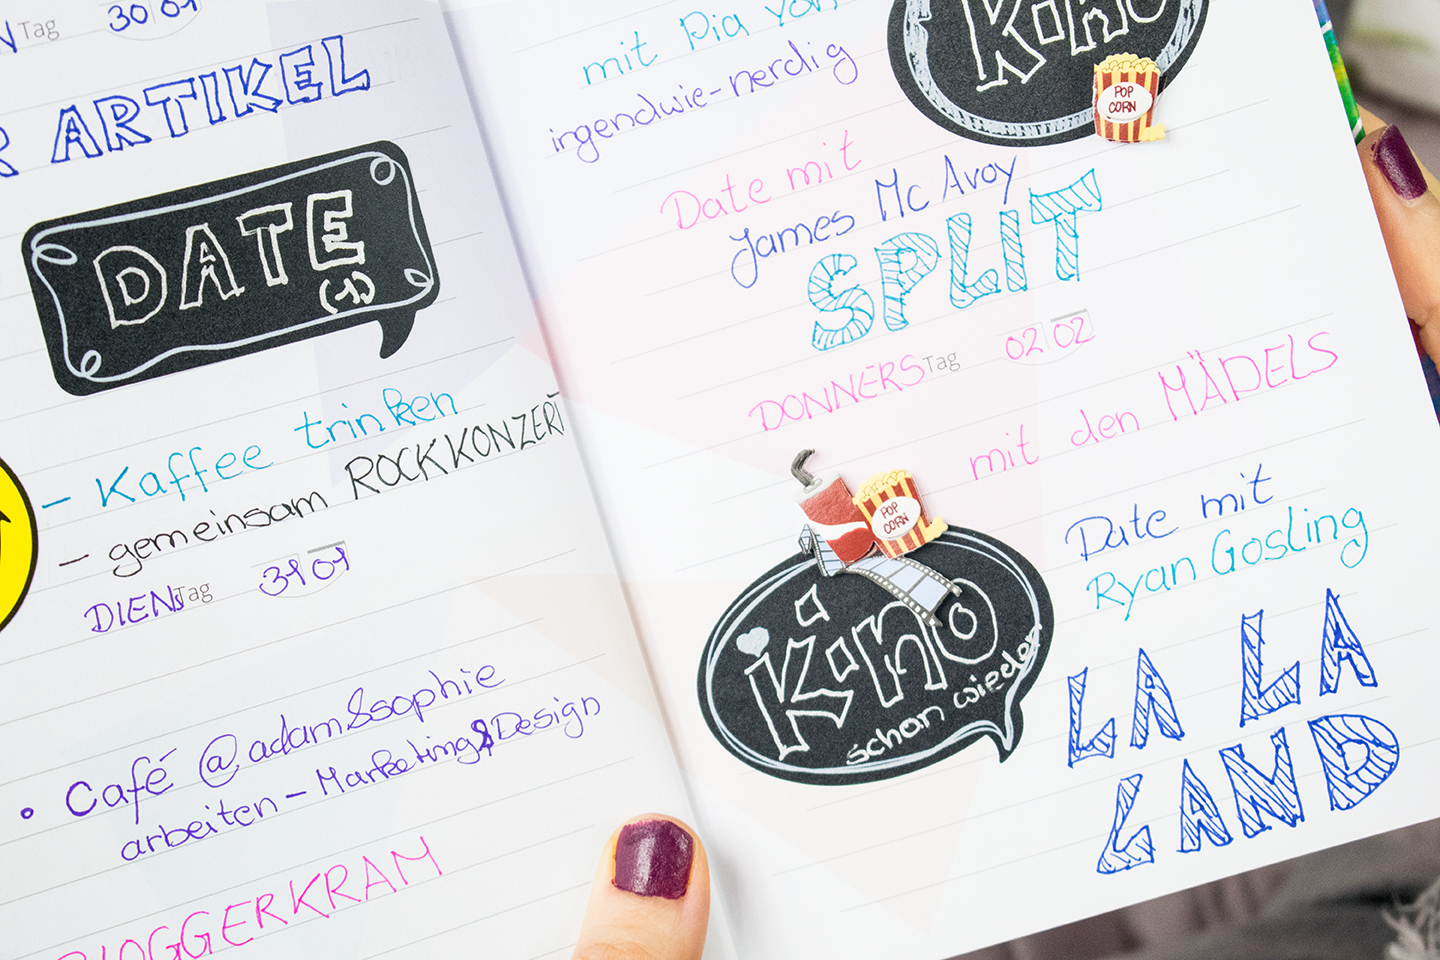 Tag 30 01
R ARTIKEL
DATE
(1)
- Kaffee trinken
- gemeinsam ROCKKONZERT
DIENSTag 31 01
• Café @adam&sophie
arbeiten - Marketing & Design
BLOGGERKRAM
mit Pia von
irgendwie-nerdig
Kino
POP
CORN
Date mit
James Mc Avoy
SPLIT
DONNERSTag 02 02
mit den MÄDELS
POP
CORN
Kino
schon wieder
Date mit
Ryan Gosling
LA LA
LAND